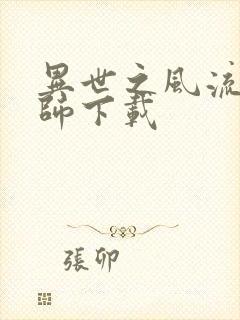 異世之風流
師下載
張卯